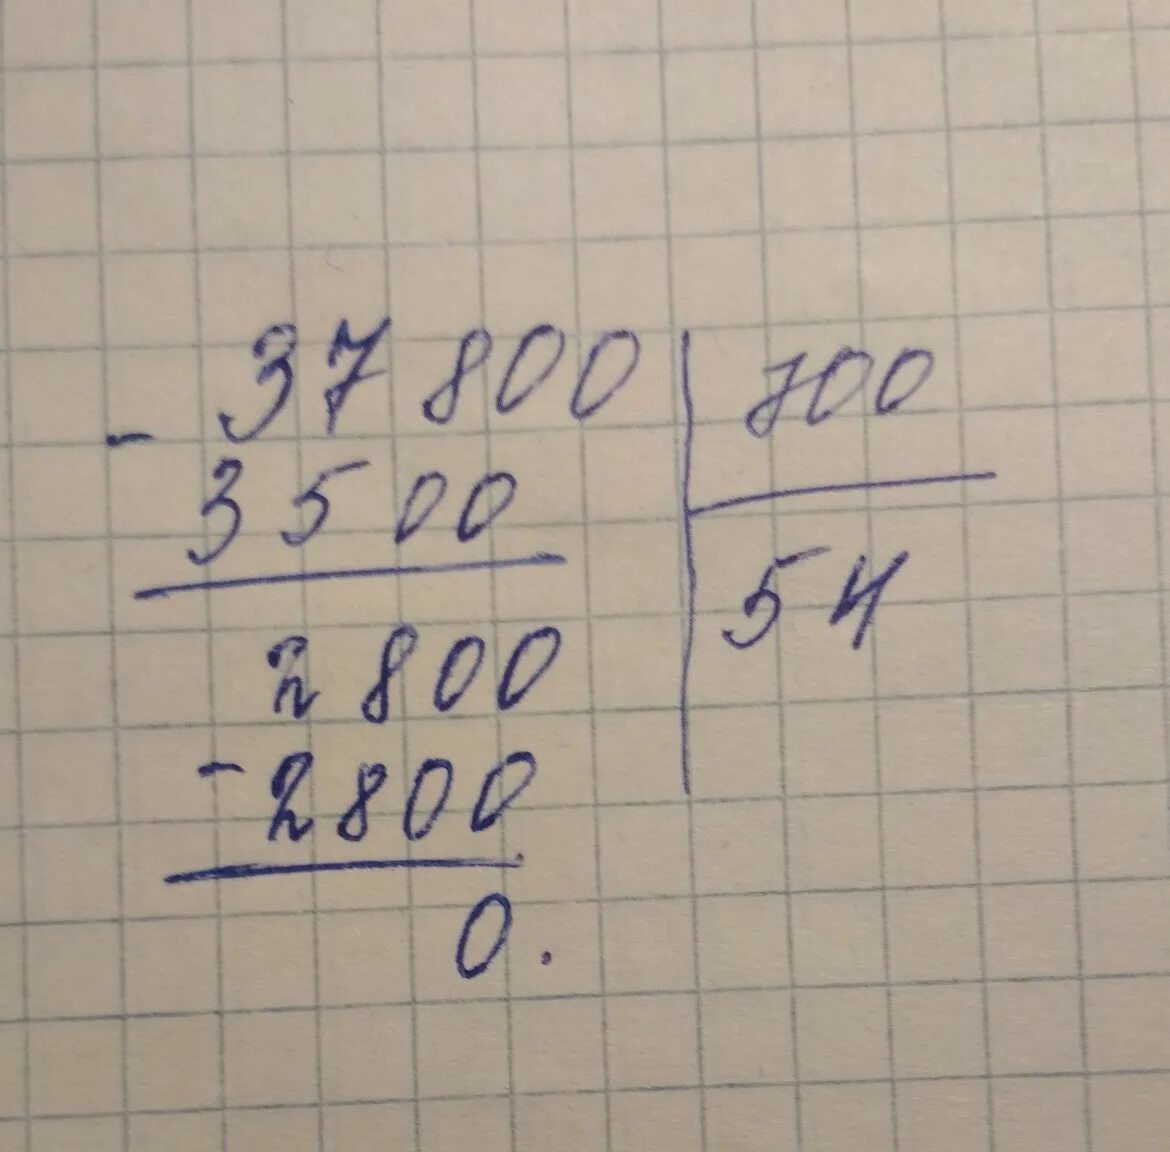 - 37800 | 700
3500 | 54
2800
- 2800
0.